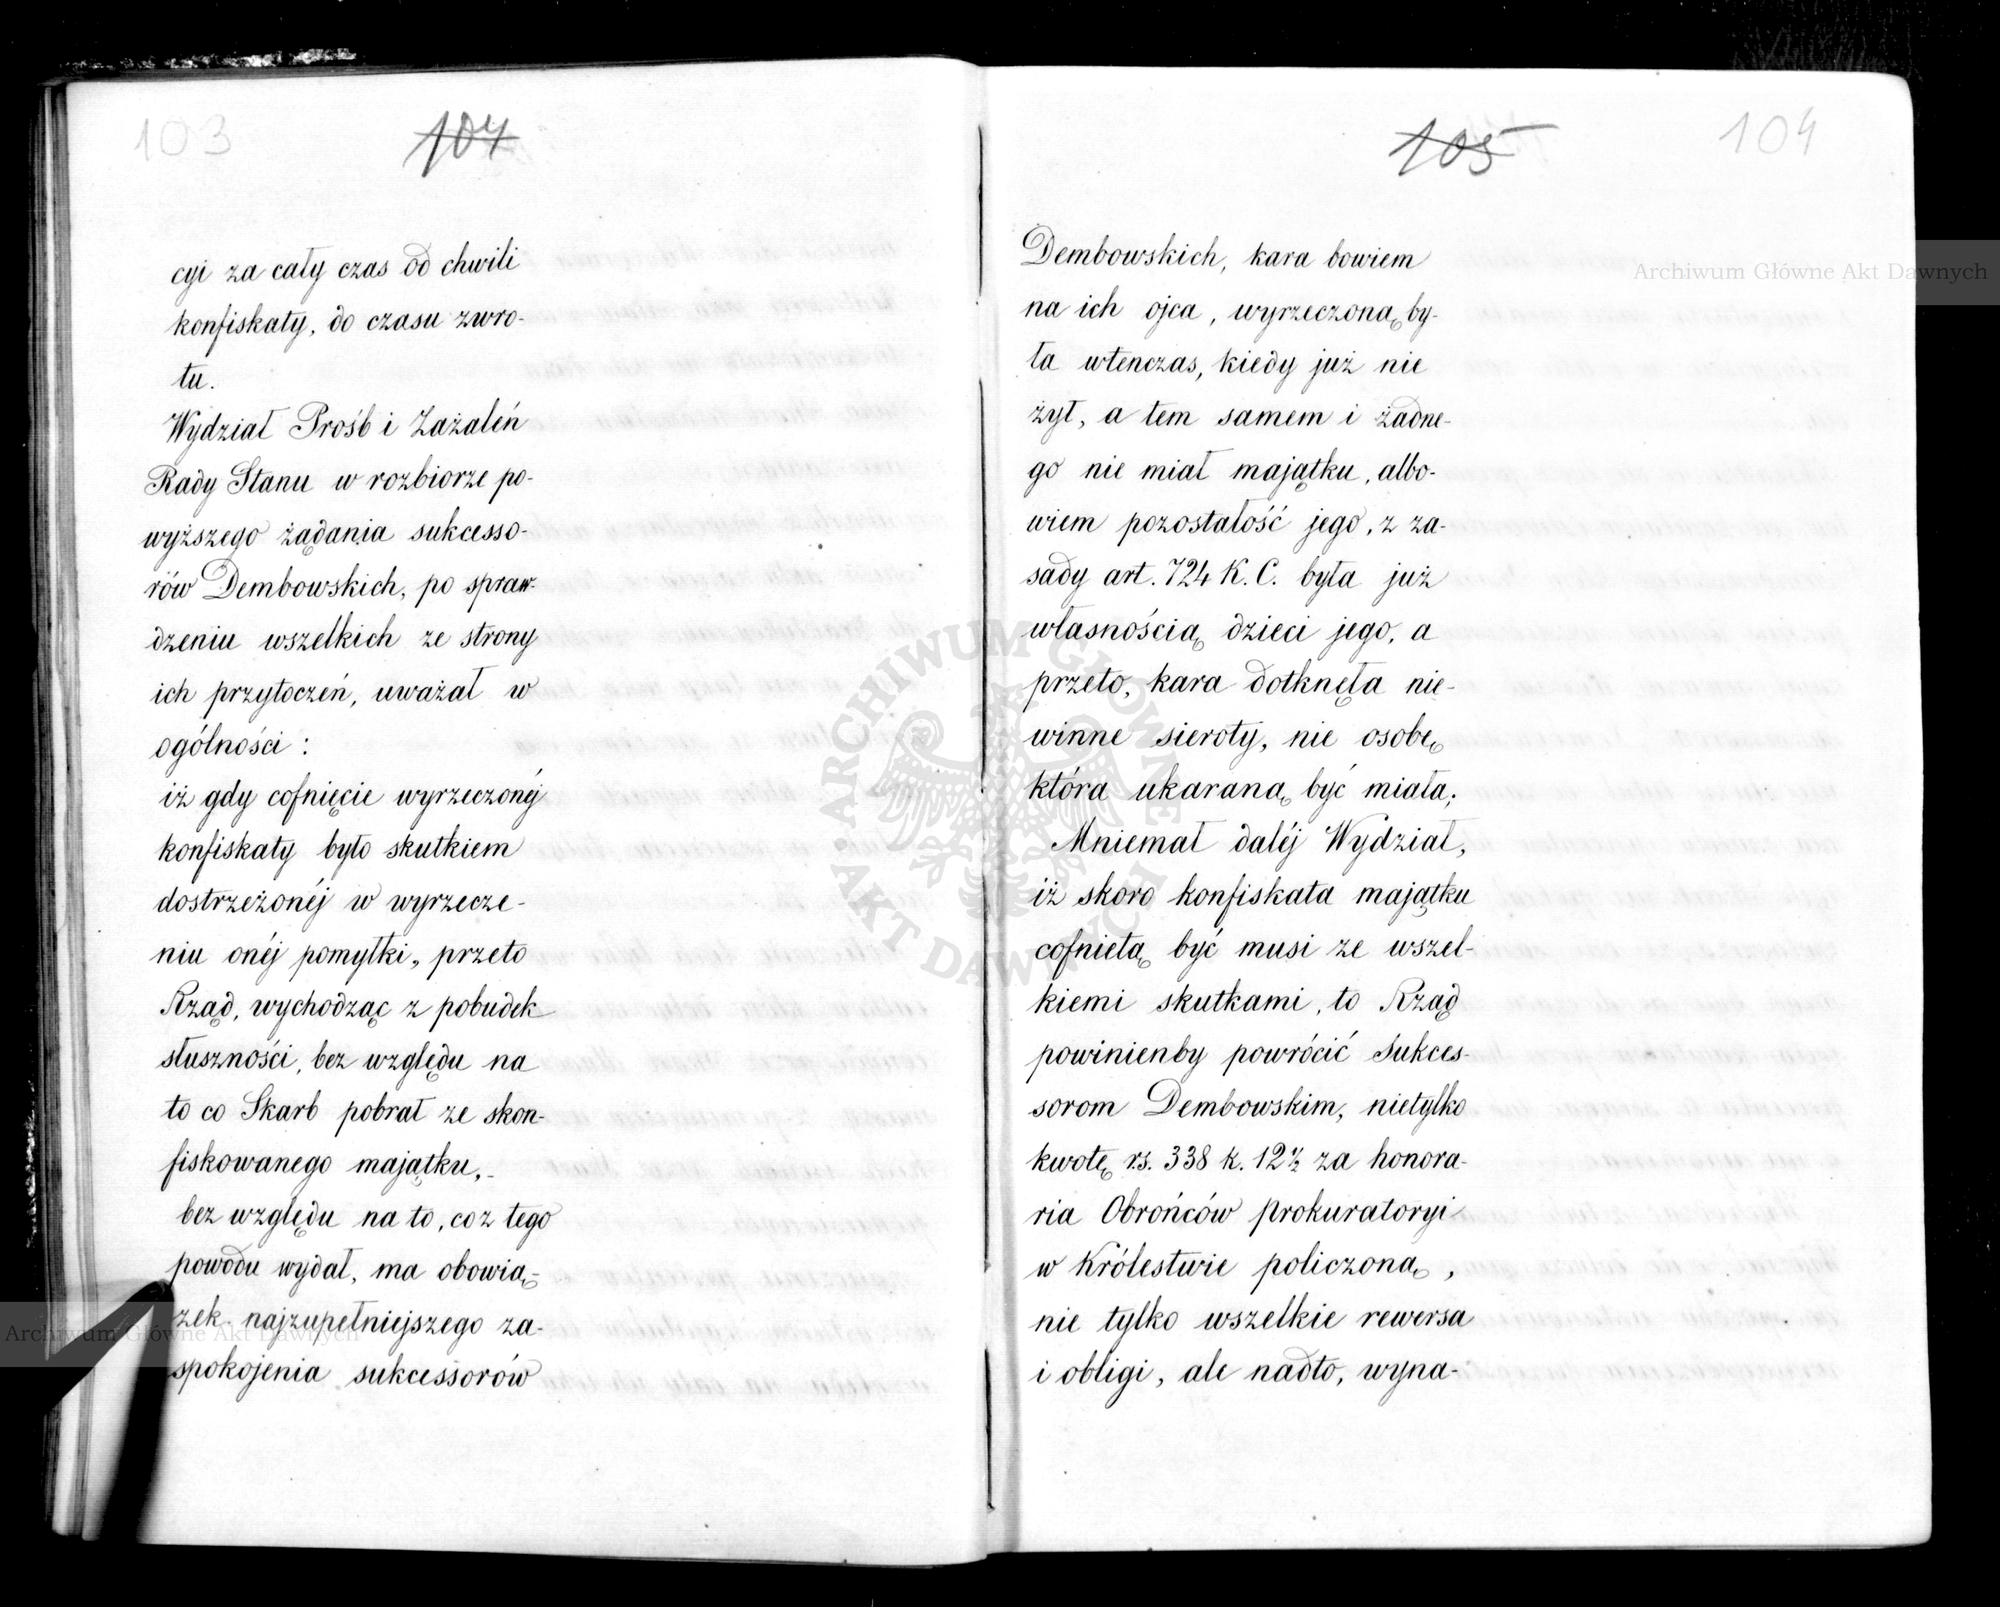 103
104
cyi za cały czas od chwili
konfiskaty, do czasu zwro-
tu.
Wydział Prośb i Zażaleń
Rady Stanu w rozbiorze po-
wyższego żądania sukcesso-
rów Dembowskich, po spraw-
dzeniu wszelkich ze strony
ich przytoczeń, uważał w
ogólności :
iż gdy cofnięcie wyrzeczonéj
konfiskaty było skutkiem
dostrzeżonéj w wyrzecze-
niu onéj pomyłki, przeto
Rząd, wychodząc z pobudek
słuszności, bez względu na
to co Skarb pobrał ze skon-
fiskowanego majątku,
bez względu na to, co z tego
powodu wydał, ma obowią-
zek najzupełniejszego za-
spokojenia sukcessorów
105
104
Dembowskich, kara bowiem
na ich ojca, wyrzeczoną by-
ła wtenczas, kiedy już nie
żył, a tem samem i żadne-
go nie miał majątku, albo-
wiem pozostałość jego, z za-
sady art. 724 K. C. była już
własnością dzieci jego, a
przeto, kara dotknęła nie-
winne sieroty, nie osobę
która ukaraną być miała;
Mniemał daléj Wydział,
iż skoro konfiskata majątku
cofnietą być musi ze wszel-
kiemi skutkami, to Rząd
powinienby powrócić Sukces-
sorom Dembowskim, nietylko
kwotę rs. 338 k. 12½ za honora-
ria Obrońców Prokuratoryi
w Królestwie policzoną,
nie tylko wszelkie rewersa
i obligi, ale nadto, wyna-
Archiwum Główne Akt Dawnych
Archiwum Główne Akt Dawnych
ARCHIWUM GŁÓWNE AKT DAWNYCH